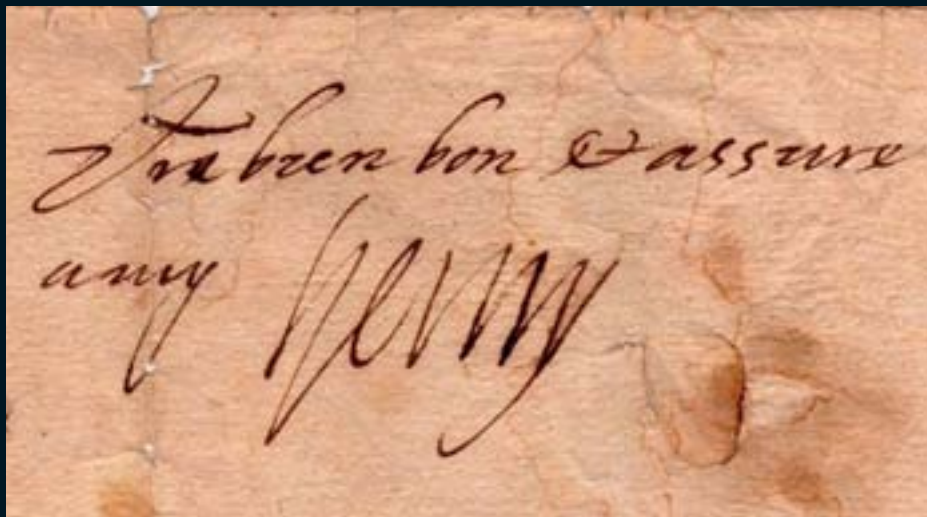 Vre bien bon & assure
amy Henry